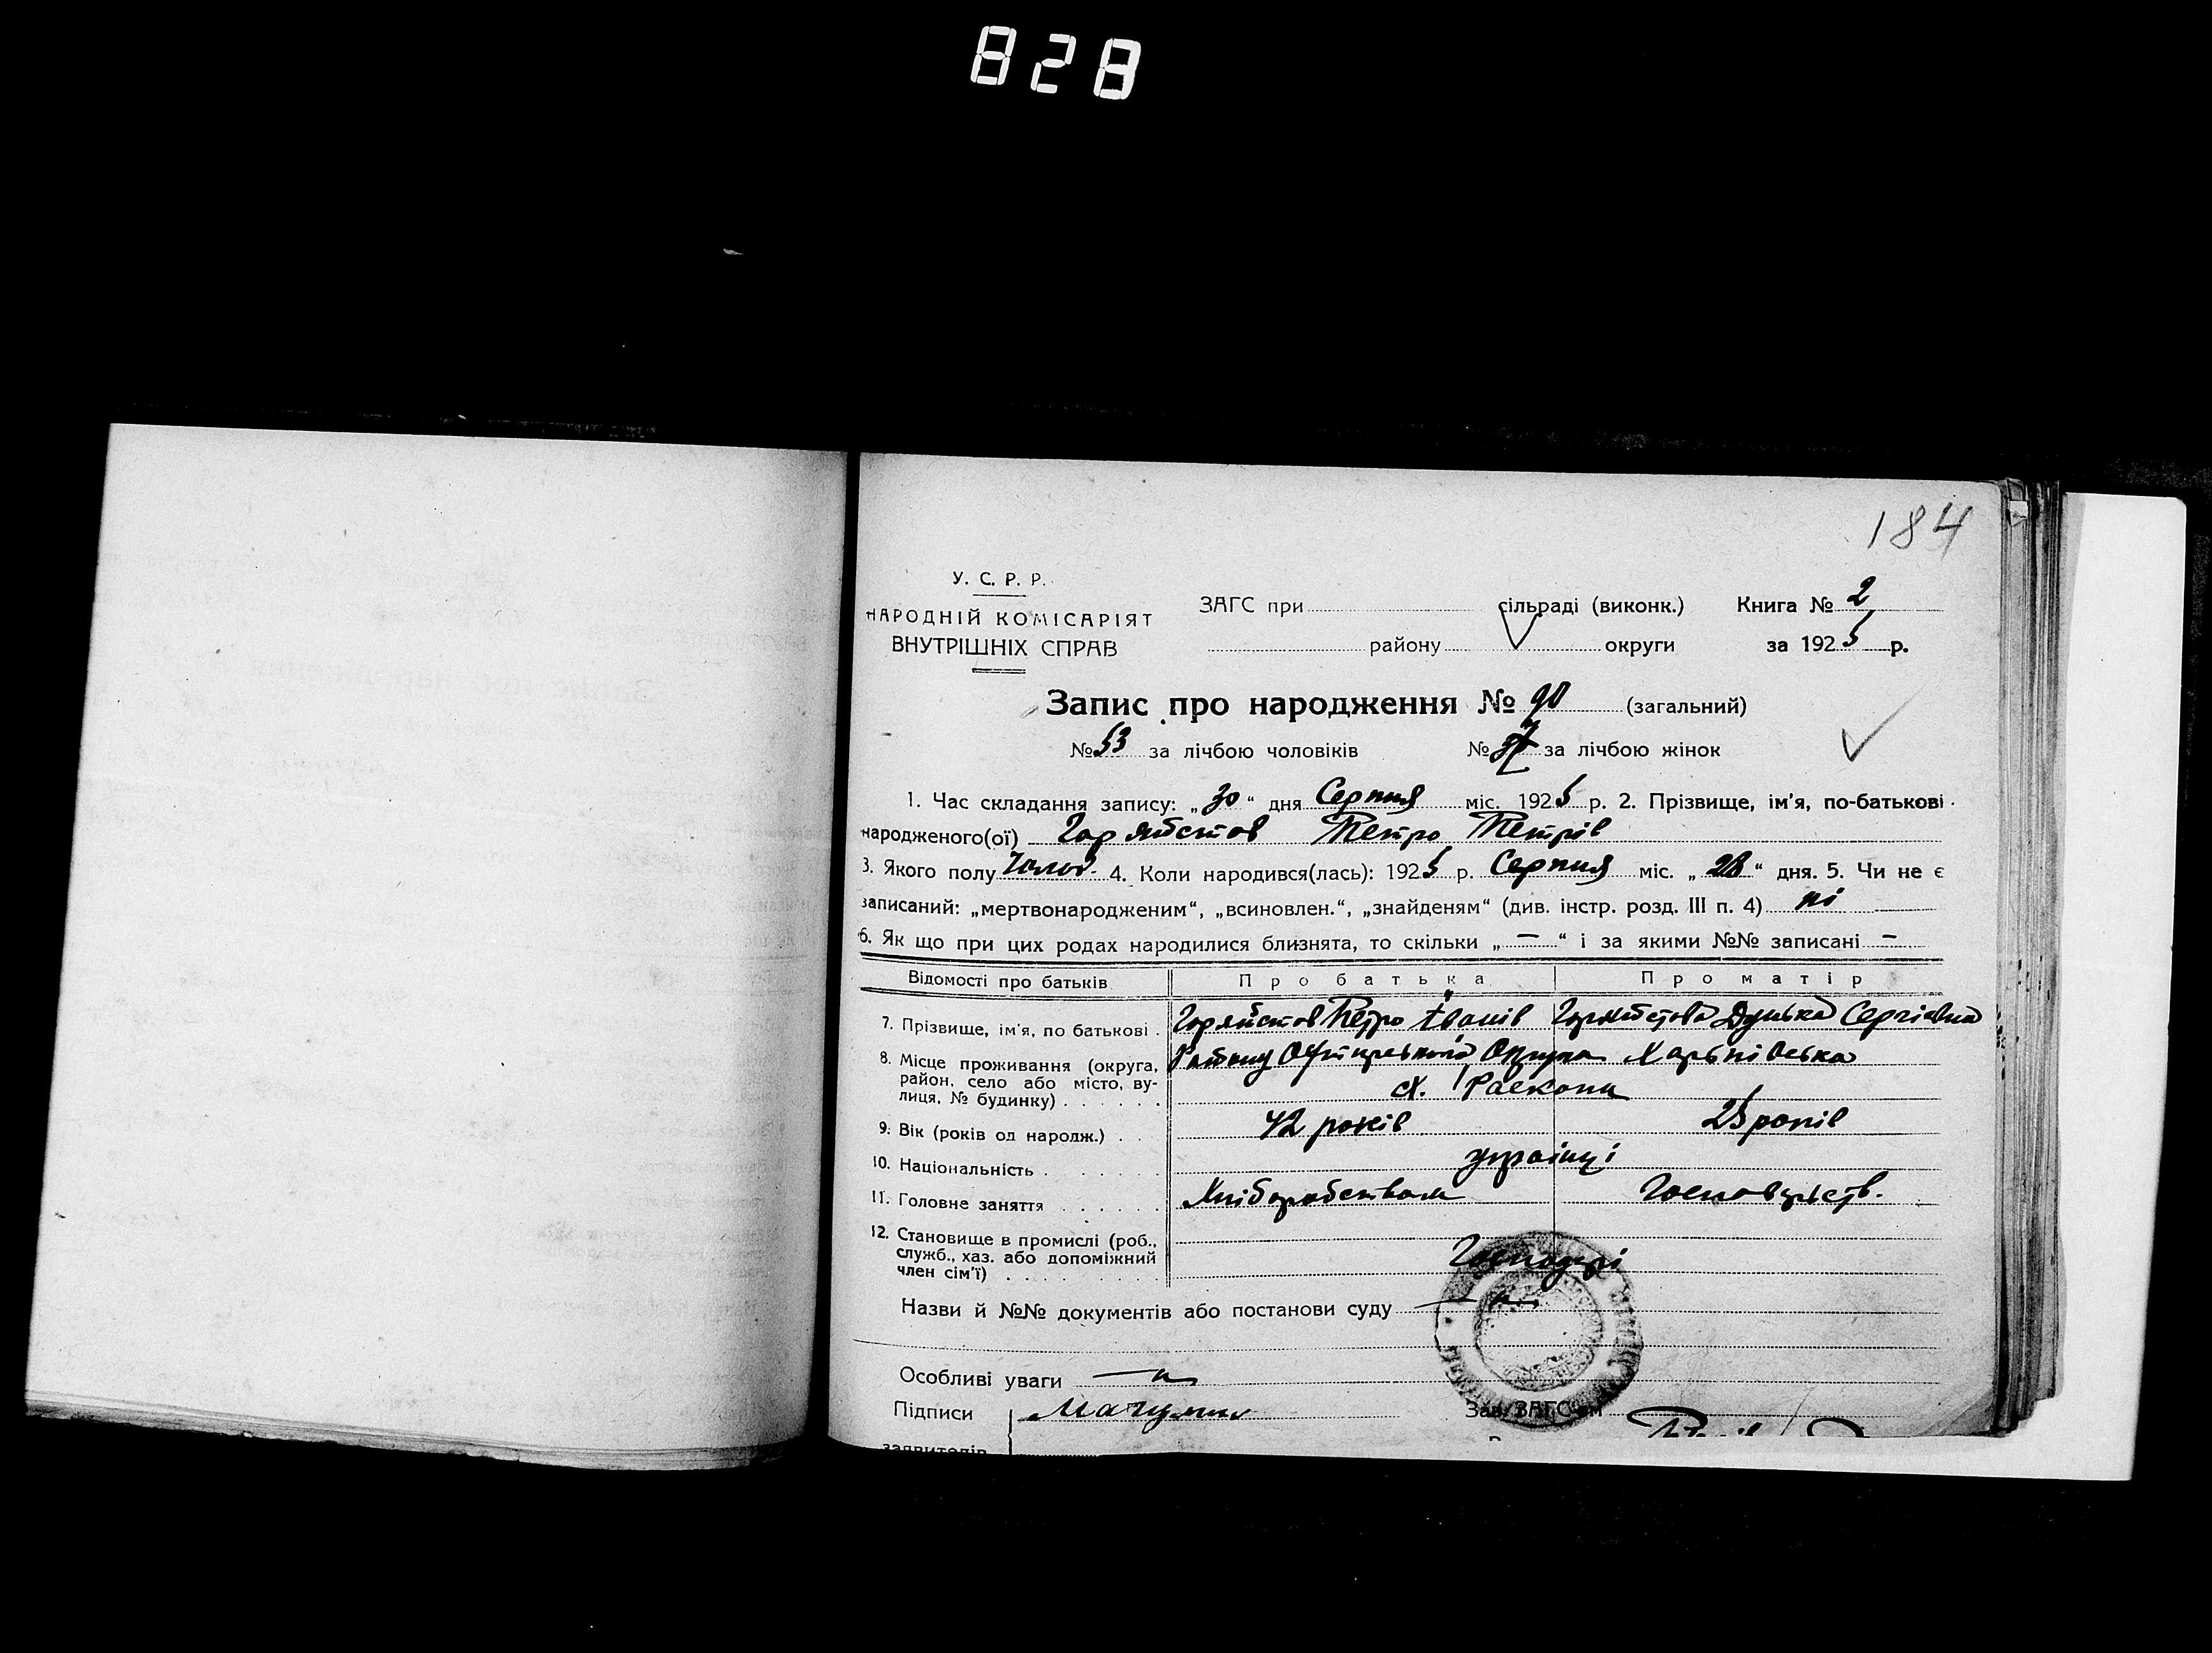 828
184
У. С. Р. Р.
НАРОДНІЙ КОМІСАРІЯТ
ВНУТРІШНІХ СПРАВ
ЗАГС при сільраді (виконк.) Книга № 2
району округи за 1925 р.
Запис про народження № 90 (загальний)
№ 53 за лічбою чоловіків № за лічбою жінок
1. Час складання запису: „30“ дня Серпня міс. 1925 р. 2. Прізвище, ім'я, по-батькові
народженого(ої) Петро Петрів
3. Якого полу Чолов. 4. Коли народився(лась): 1925 р. Серпня міс. „28“ дня. 5. Чи не є
записаний: „мертвонародженим“, „всиновлен.“, „знайденям“ (див. інстр. розд. III п. 4) ні
6. Як що при цих родах народилися близнята, то скільки „—“ і за якими №№ записані —
Відомості про батьків Про батька Про матір
7. Прізвище, ім'я, по батькові Петро Іванів Сергіевна
8. Місце проживання (округа,
район, село або місто, ву-
лиця, № будинку)
Округа Харьківська
х. Раскопи
9. Вік (років од народж.) 42 років 25 років
10. Національність українці
11. Головне заняття Хліборобством
12. Становище в промислі (роб.,
служб., хаз. або допоміжний
член сім'ї)
Господарі
Назви й №№ документів або постанови суду
Особливі уваги
Підписи
Зав. ЗАГС'ом
заявителів